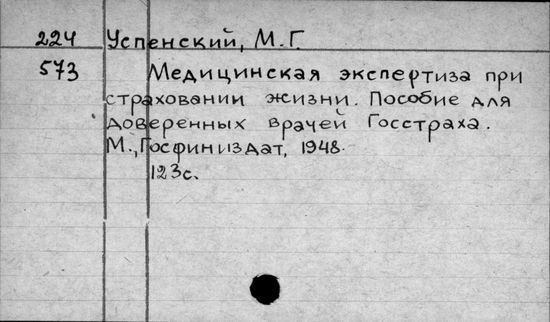 224 Успенский, М.Г.
573 Медицинская экспертиза при
страховании жизни. Пособие для
доверенных врачей Госстраха.
М., Госфиниздат, 1948.
123с.